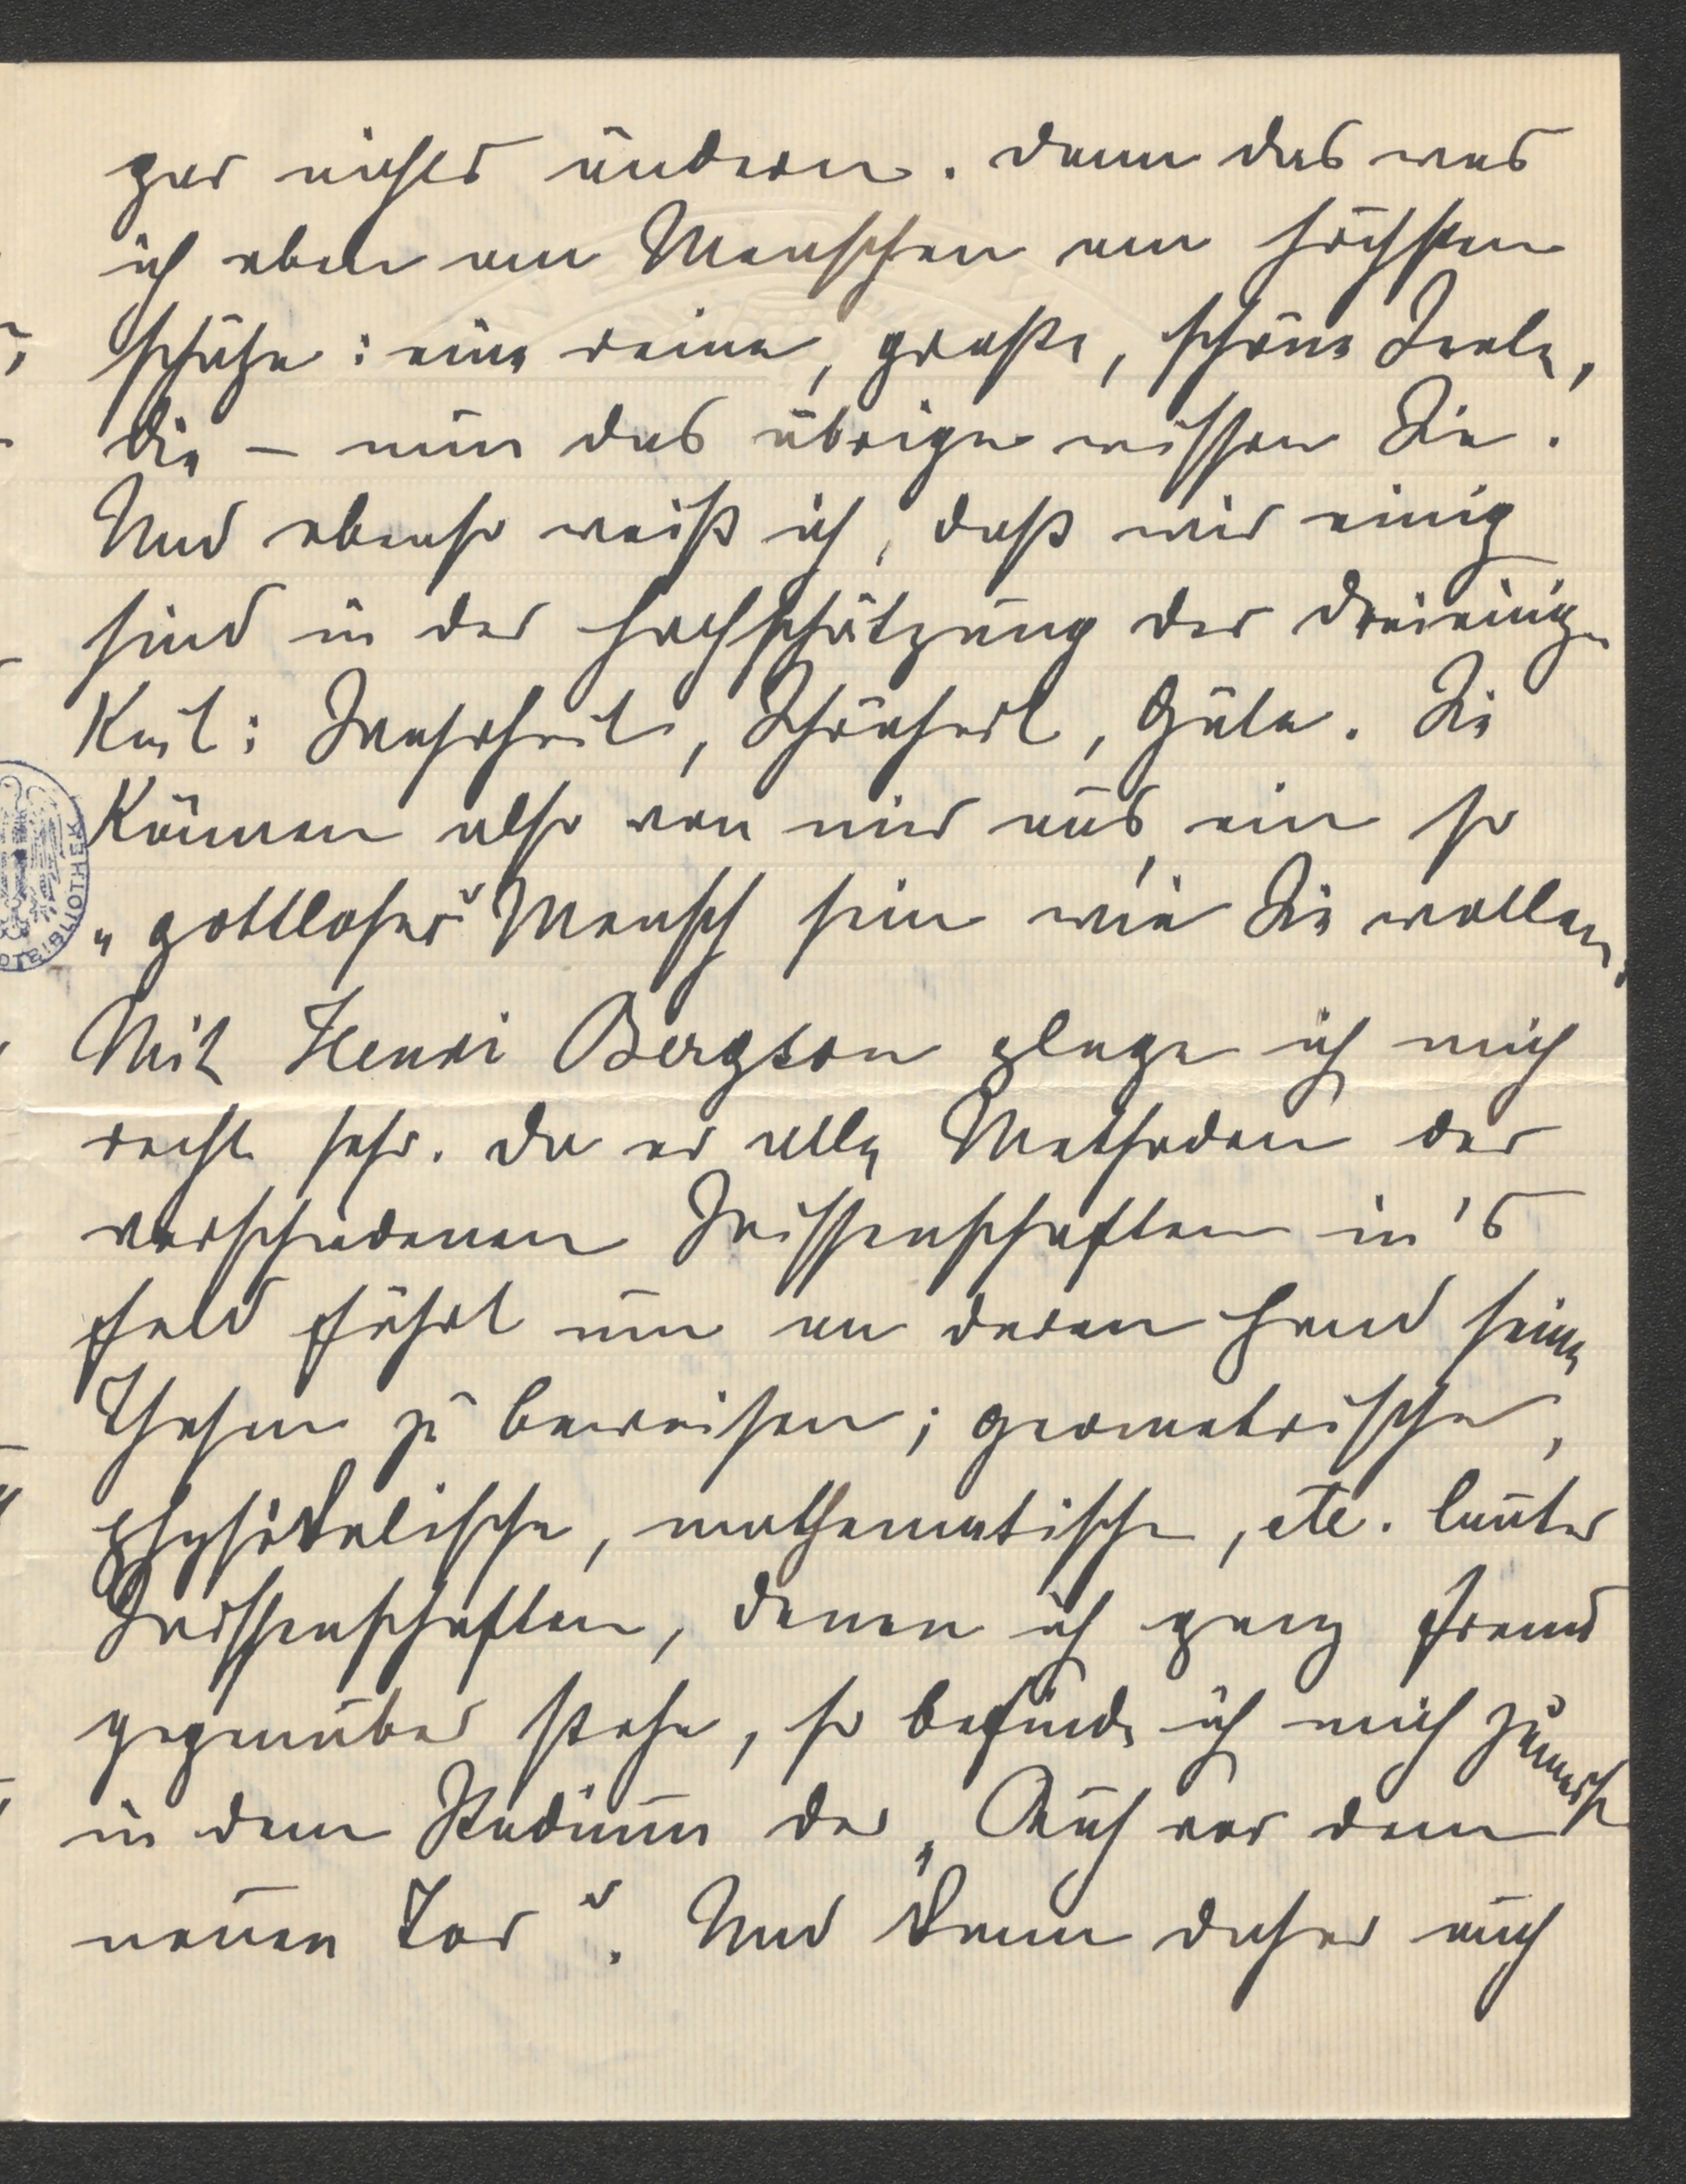 gar nichts ändern. Denn das was
ich eben am Menschen am höchsten
schätze: eine reine, große, schöne Seele,
die – nun das übrige wissen Sie.
Und ebenso weiß ich, daß wir einig
sind in der Hochschätzung der Dreieinig-
keit: Wahrheit, Schönheit, Güte. Sie
können also von mir aus, ein so
„gottloser“ Mensch sein wie Sie wollen.
Mit Henri Bergson plage ich mich
recht sehr. Da er alle Methoden der
verschiedenen Wissenschaften in's
Feld führt um an deren Hand seine
Thesen zu beweisen; geometrische,
physikalische, mathematische, etc. lauter
Wissenschaften, denen ich ganz fremd
gegenüber stehe, so befinde ich mich zumeist
in dem Stadium der „Kuh vor dem
neuen Tor“. Und kann daher auch